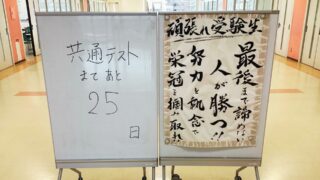 共通テスト
まであと
25
日
頑張れ受験生
最後まで諦めない
人が勝つ!!
努力と執念で
栄冠を掴み取れ